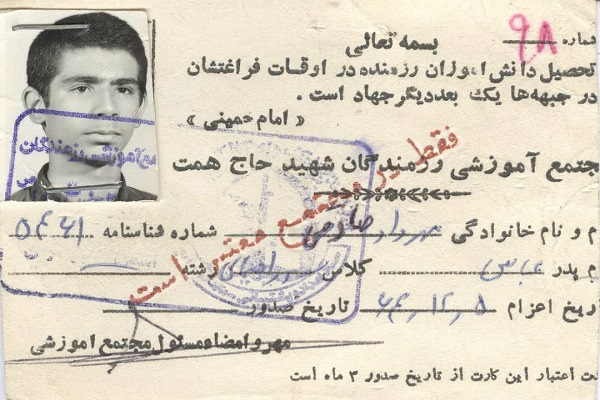 شماره ۹۸
بسمه تعالی
تحصیل دانش آموزان رزمنده در اوقات فراغتشان
در جبهه‌ها یک بعد دیگر جهاد است .
« امام خمینی »
جتمع آموزشی رزمندگان شهید حاج همت
فقط در مجتمع معتبر است
م و نام خانوادگی مهرداد شماره شناسنامه ۵۴۶۱
م پدر عباس کلاس رشته
ریخ اعزام ۶۴,۱۲,۵ تاریخ صدور
مهر و امضاء مسئول مجتمع آموزشی
ت اعتبار این کارت از تاریخ صدور ۳ ماه است